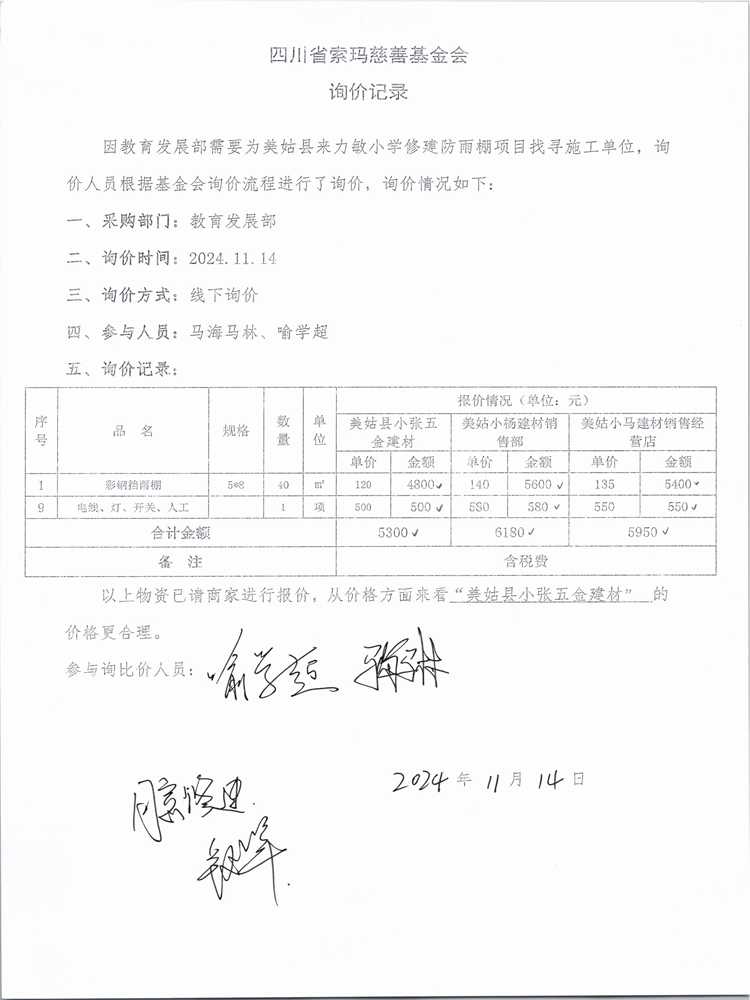 四川省索玛慈善基金会
询价记录
因教育发展部需要为美姑县来力敏小学修建防雨棚项目找寻施工单位，询
价人员根据基金会询价流程进行了询价，询价情况如下：
一、采购部门：教育发展部
二、询价时间：2024.11.14
三、询价方式：线下询价
四、参与人员：马海马林、喻学超
五、询价记录：
序号 品 名 规格 数量 单位 报价情况（单位：元）
美姑县小张五金建材 美姑小杨建材销售部 美姑小马建材销售经营店
单价 金额 单价 金额 单价 金额
1 彩钢挡雨棚 5*8 40 ㎡ 120 4800✓ 140 5600✓ 135 5400✓
9 电线、灯、开关、人工 1 项 500 500✓ 580 580✓ 550 550✓
合计金额 5300✓ 6180✓ 5950✓
备 注 含税费
以上物资已请商家进行报价，从价格方面来看“美姑县小张五金建材” 的
价格更合理。
参与询比价人员：喻学超
2024年11月14日
同意修建.